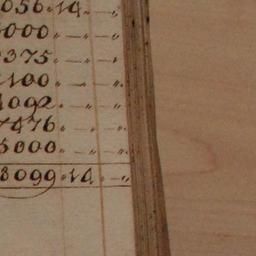 056.14.—„
000.—„—„
375.—„—„
100.—„—„
4092.—„—„
7476.—„—„
5000.—„—„
8099.14.—„